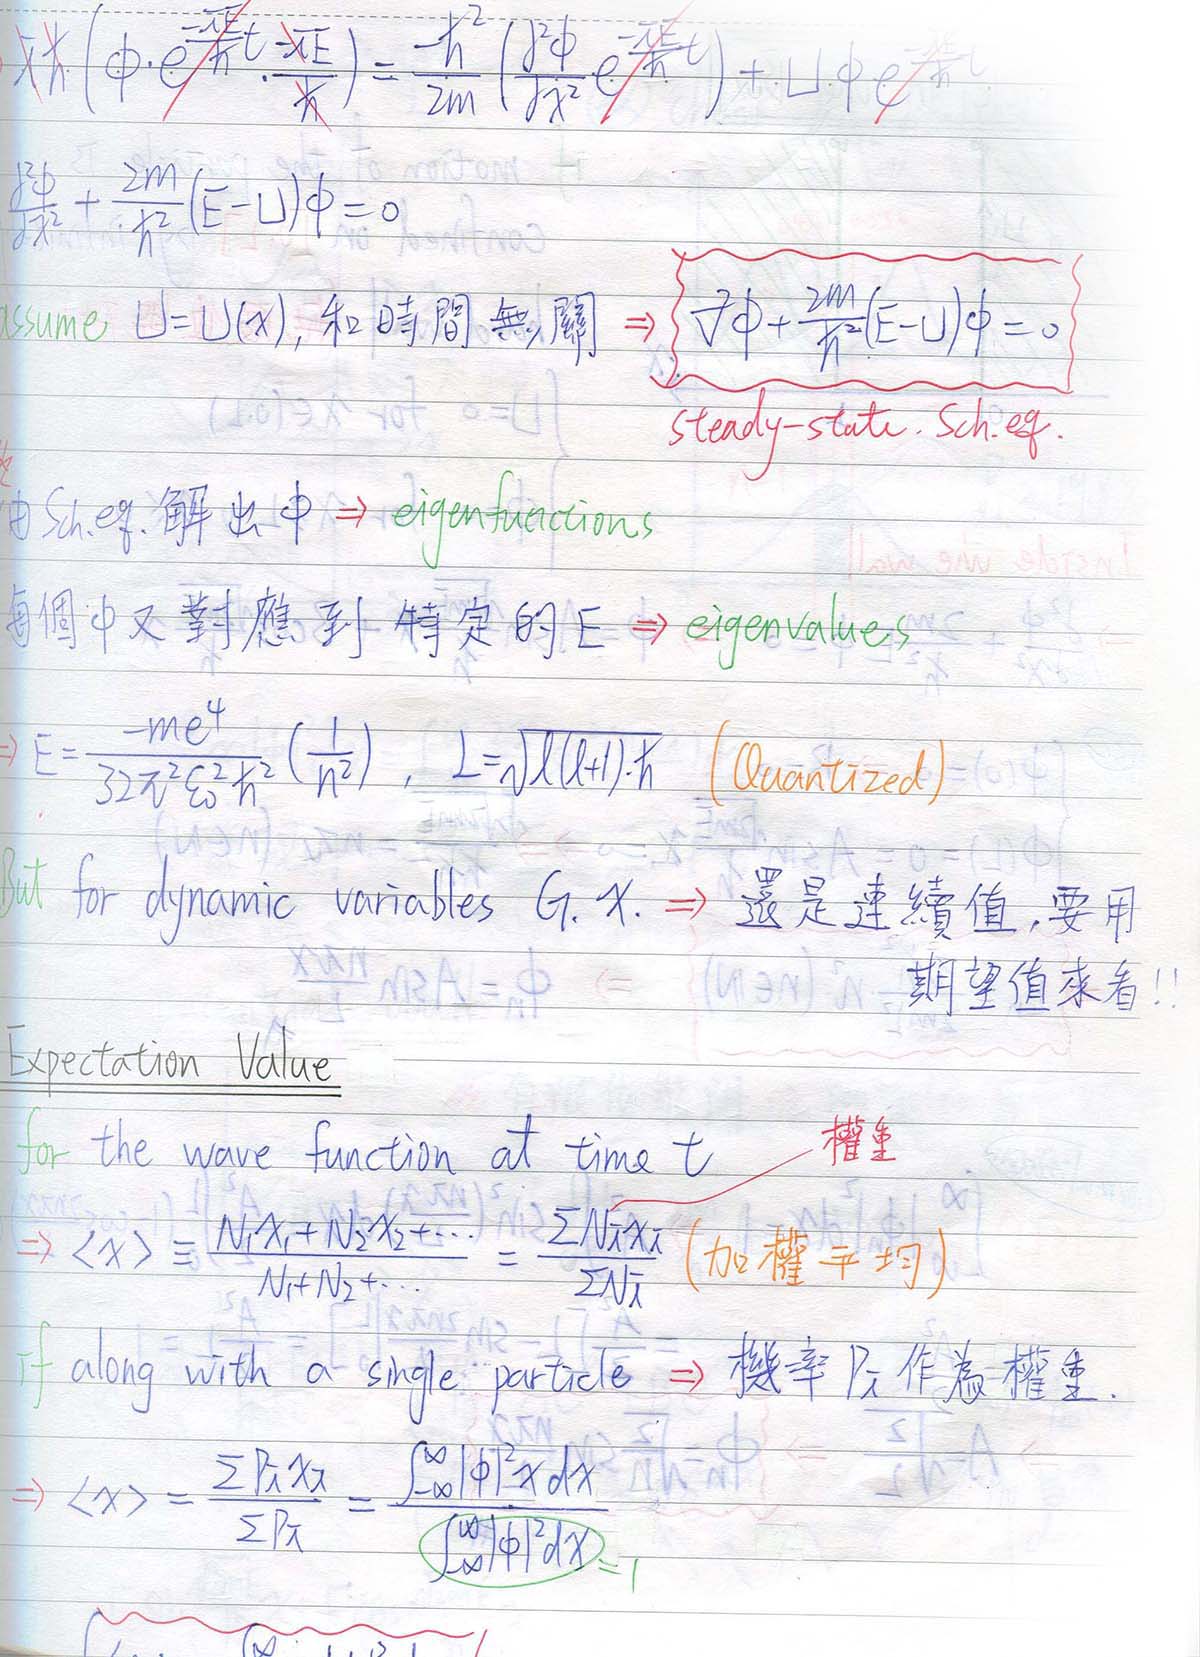 iħ(φ·e^{-iE/ħ t}·-iE/ħ) = -ħ²/2m (∂²φ/∂x² e^{-iE/ħ t}) + U·φ e^{-iE/ħ t}
∂²φ/∂x² + 2m/ħ² (E-U)φ = 0
assume U=U(x), 和時間無關 ⇒ ∇²φ + 2m/ħ² (E-U)φ = 0
steady-state. Sch. eq.
由 Sch. eq. 解出 φ ⇒ eigenfunctions
每個 φ 又對應到特定的 E ⇒ eigenvalues
⇒ E = -me⁴/32π²ε₀²ħ² (1/n²), L=√l(l+1)·ħ (Quantized)
But for dynamic variables G. x. ⇒ 還是連續值, 要用
期望值來看!!
Expectation Value
for the wave function at time t 權重
⇒ <x> = N₁x₁+N₂x₂+···/N₁+N₂+··· = ΣNᵢxᵢ/ΣNᵢ (加權平均)
if along with a single particle ⇒ 機率 Pᵢ 作為權重.
⇒ <x> = ΣPᵢxᵢ/ΣPᵢ = ∫_{-∞}^{∞}|φ|²x dx/∫_{-∞}^{∞}|φ|²dx = 1